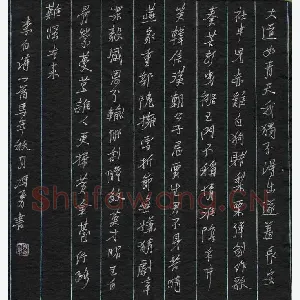 大道如青天我獨不得出羞逐長安
社中兒赤雞白狗賭梨栗彈劍作歌
奏苦聲曳裾王門不稱情淮陰市井
笑韓信漢朝公卿忌賈生君不見昔時
燕家重郭隗擁篲折節無嫌猜劇辛
樂毅感恩分輸肝剖膽效英才昭王白
骨縈蔓草誰人更掃黃金臺行路
難歸去來
李白詩一首 秋月 書
Shufawang.CN